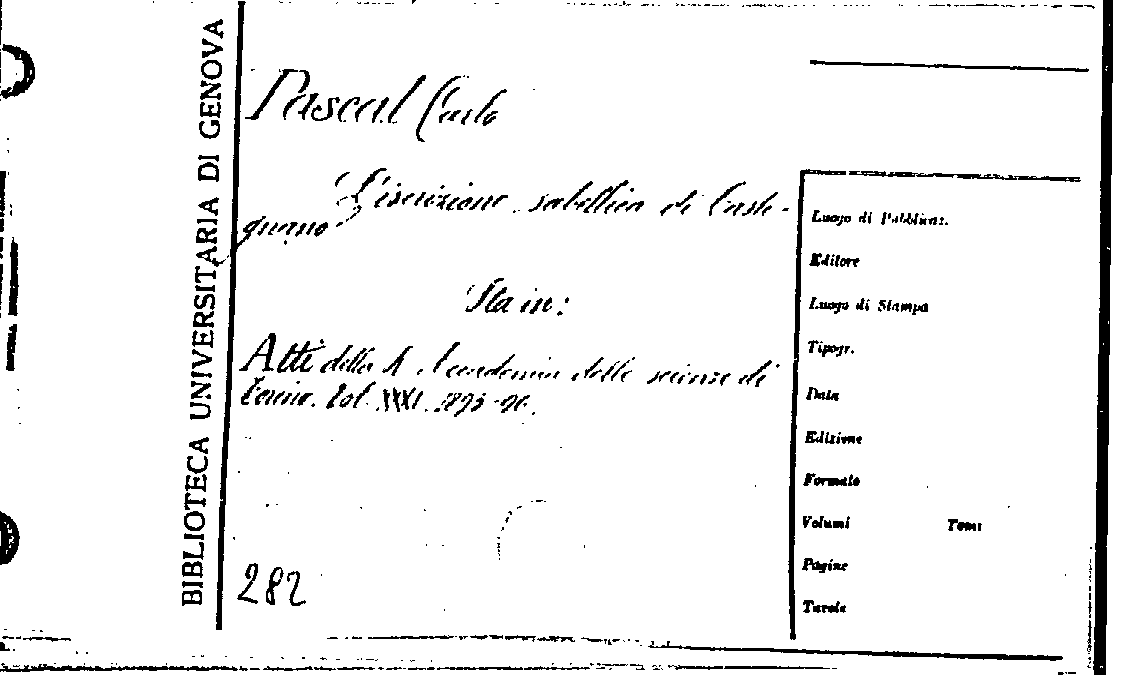 BIBLIOTECA UNIVERSITARIA DI GENOVA
Pascal Carlo
L'iscrizione sabellica di Caste-
gnano
Sta in:
Atti della R. Accademia delle scienze di
Torino. Vol. XXXI. 1895-96.
282
Luogo di Pubblicaz.
Editore
Luogo di Stampa
Tipogr.
Data
Edizione
Formato
Volumi Tomi
Pagine
Tavole